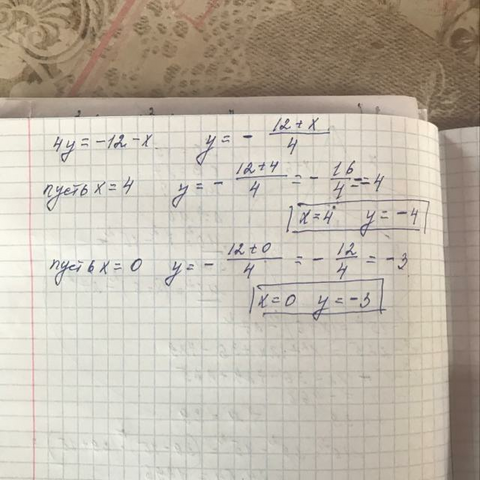 4y = -12 - x. y = - \frac{12+x}{4}
пусть x = 4 y = - \frac{12+4}{4} = - \frac{16}{4} = -4
x = 4 y = -4
пусть x = 0 y = - \frac{12+0}{4} = - \frac{12}{4} = -3
x = 0 y = -3